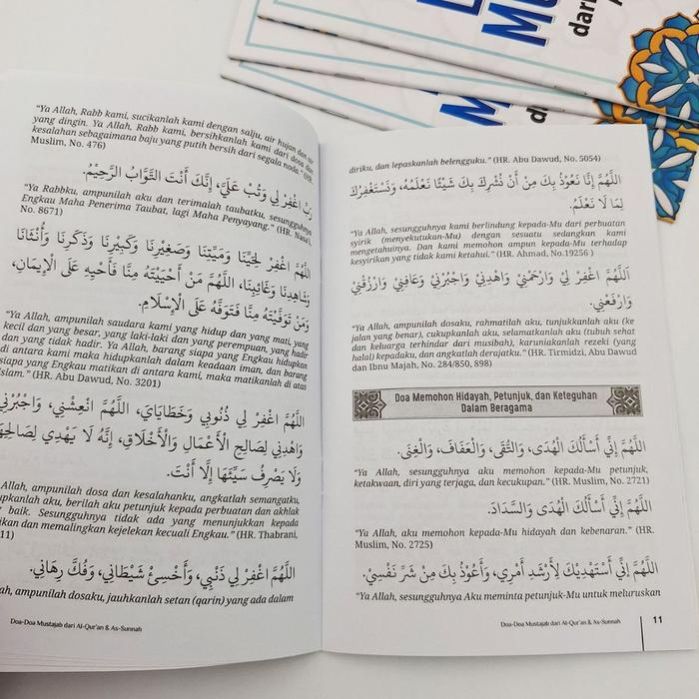 "Ya Allah, Rabb kami, sucikanlah kami dengan salju, air hujan dan air
yang dingin. Ya Allah, Rabb kami, bersihkanlah kami dari dosa dan
kesalahan sebagaimana baju yang putih bersih dari segala noda." (HR.
Muslim, No. 476)
رَبِّ اغْفِرْ لِي وَتُبْ عَلَيَّ، إِنَّكَ أَنْتَ التَّوَّابُ الرَّحِيْمُ.
"Ya Rabbku, ampunilah aku dan terimalah taubatku, sesungguhnya
Engkau Maha Penerima Taubat, lagi Maha Penyayang." (HR. Nasa'i,
No. 8671)
اللَّهُمَّ اغْفِرْ لِحَيِّنَا وَمَيِّتِنَا وَصَغِيْرِنَا وَكَبِيْرِنَا وَذَكَرِنَا وَأُنْثَانَا
وَشَاهِدِنَا وَغَائِبِنَا، اللَّهُمَّ مَنْ أَحْيَيْتَهُ مِنَّا فَأَحْيِهِ عَلَى الْإِيمَانِ،
وَمَنْ تَوَفَّيْتَهُ مِنَّا فَتَوَفَّهُ عَلَى الْإِسْلَامِ.
"Ya Allah, ampunilah saudara kami yang hidup dan yang mati, yang
kecil dan yang besar, yang laki-laki dan yang perempuan, yang hadir
dan yang tidak hadir. Ya Allah, barang siapa yang Engkau hidupkan
di antara kami maka hidupkanlah dalam keadaan iman, dan barang
siapa yang Engkau matikan di antara kami, maka matikanlah di atas
Islam." (HR. Abu Dawud, No. 3201)
اللَّهُمَّ اغْفِرْ لِي ذُنُوبِي وَخَطَايَايَ، اللَّهُمَّ انْعِشْنِي، وَاجْبُرْنِي
وَاهْدِنِي لِصَالِحِ الْأَعْمَالِ وَالْأَخْلَاقِ، إِنَّهُ لَا يَهْدِي لِصَالِحِهَا
وَلَا يَصْرِفُ سَيِّئَهَا إِلَّا أَنْتَ.
Allah, ampunilah dosa dan kesalahanku, angkatlah semangatku,
upkanlah aku, berilah aku petunjuk kepada perbuatan dan akhlak
baik. Sesungguhnya tidak ada yang menunjukkan kepada
ikan dan memalingkan kejelekan kecuali Engkau." (HR. Thabrani,
11)
اللَّهُمَّ اغْفِرْ لِي ذَنْبِي، وَأَخْسِئْ شَيْطَانِي، وَفُكَّ رِهَانِي.
ah, ampunilah dosaku, jauhkanlah setan (qarin) yang ada dalam
Doa-Doa Mustajab dari Al-Qur'an & As-Sunnah
diriku, dan lepaskanlah belengguku." (HR. Abu Dawud, No. 5054)
اللَّهُمَّ إِنَّا نَعُوْذُ بِكَ مِنْ أَنْ نُشْرِكَ بِكَ شَيْئًا نَعْلَمُهُ، وَنَسْتَغْفِرُكَ
لِمَا لَا نَعْلَمُ.
"Ya Allah, sesungguhnya kami berlindung kepada-Mu dari perbuatan
syirik (menyekutukan-Mu) dengan sesuatu sedangkan kami
mengetahuinya. Dan kami memohon ampun kepada-Mu terhadap
kesyirikan yang tidak kami ketahui." (HR. Ahmad, No.19256 )
اَللَّهُمَّ اغْفِرْ لِيْ وَارْحَمْنِيْ وَاهْدِنِيْ وَاجْبُرْنِيْ وَعَافِنِيْ وَارْزُقْنِيْ
وَارْفَعْنِي.
"Ya Allah, ampunilah dosaku, rahmatilah aku, tunjukkanlah aku (ke
jalan yang benar), cukupkanlah aku, selamatkanlah aku (tubuh sehat
dan keluarga terhindar dari musibah), karuniakanlah rezeki (yang
halal) kepadaku, dan angkatlah derajatku." (HR. Tirmidzi, Abu Dawud
dan Ibnu Majah, No. 284/850, 898)
Doa Memohon Hidayah, Petunjuk, dan Keteguhan
Dalam Beragama
اللَّهُمَّ إِنِّي أَسْأَلُكَ الْهُدَى، وَالتُّقَى، وَالْعَفَافَ، وَالْغِنَى.
"Ya Allah, sesungguhnya aku memohon kepada-Mu petunjuk,
ketakwaan, diri yang terjaga, dan kecukupan." (HR. Muslim, No. 2721)
اللَّهُمَّ إِنِّي أَسْأَلُكَ الْهُدَى وَالسَّدَادَ.
"Ya Allah, aku memohon kepada-Mu hidayah dan kebenaran." (HR.
Muslim, No. 2725)
اللَّهُمَّ إِنِّي أَسْتَهْدِيْكَ لِأَرْشَدِ أَمْرِي، وَأَعُوْذُ بِكَ مِنْ شَرِّ نَفْسِيْ.
"Ya Allah, sesungguhnya Aku meminta petunjuk-Mu untuk meluruskan
Doa-Doa Mustajab dari Al-Qur'an & As-Sunnah
11